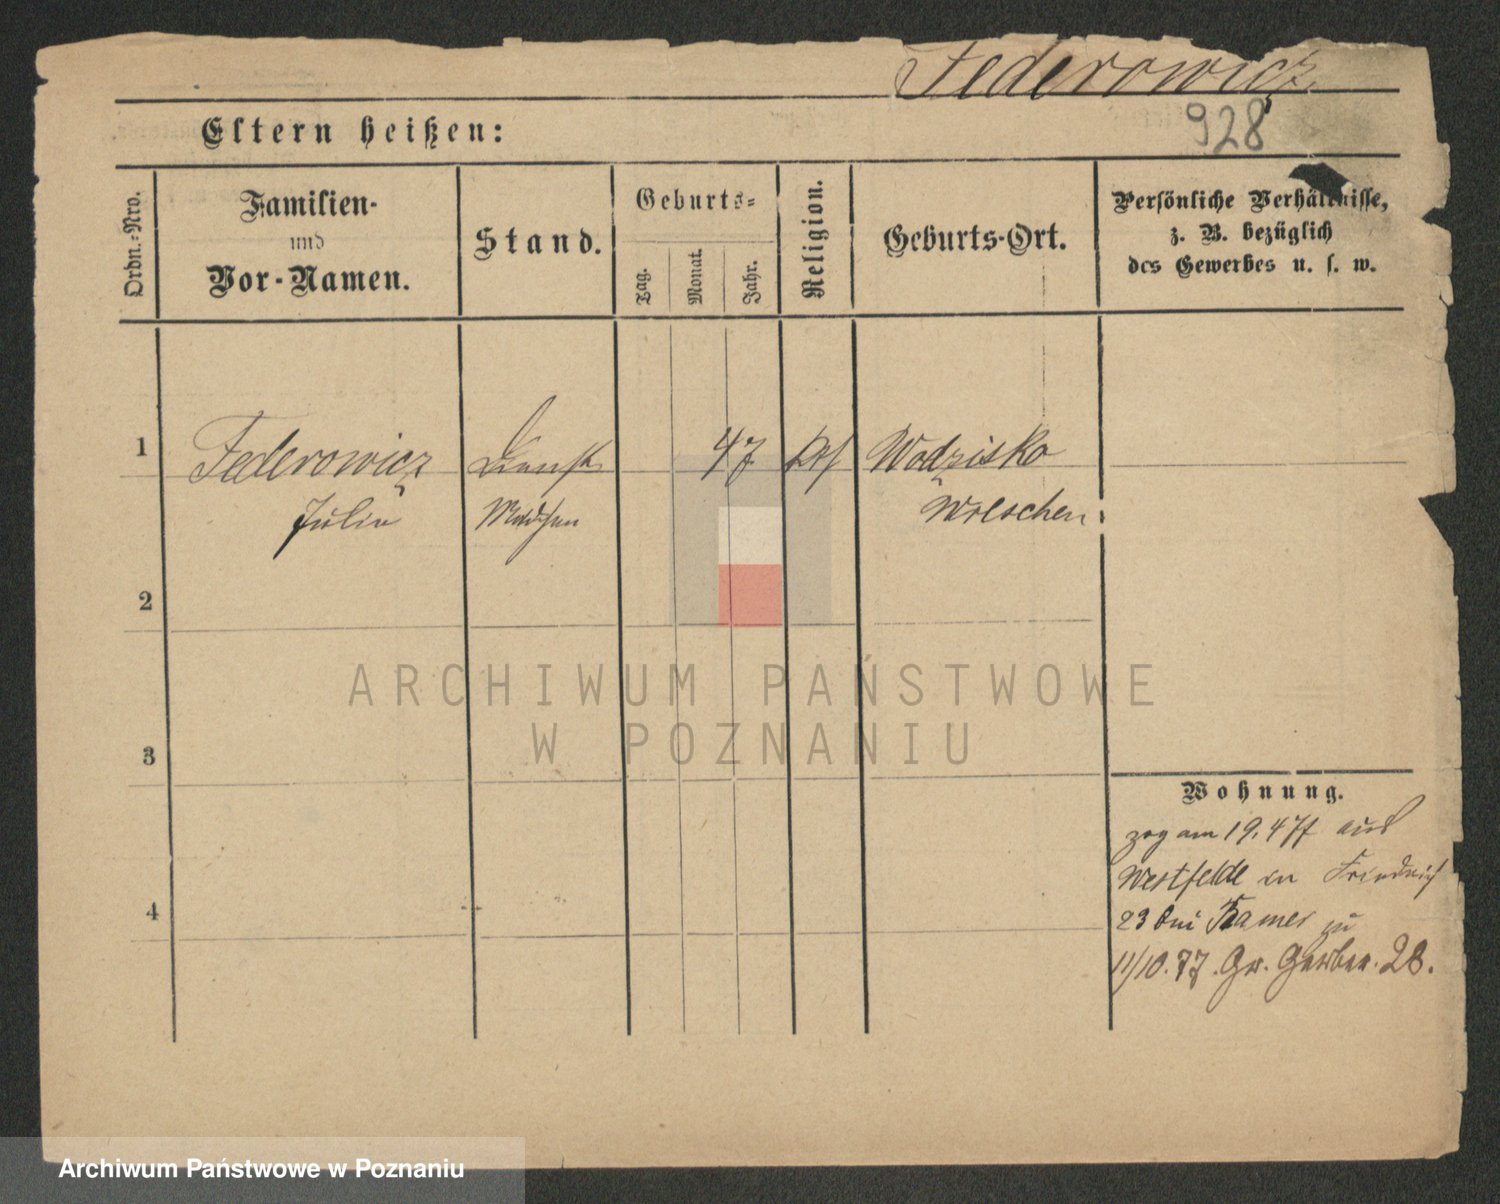 Federowicz
928
Eltern heißen:
Ordn.-Nro.
Familien-
und
Vor-Namen.
Stand.
Geburts-
Tag.
Monat.
Jahr.
Religion.
Geburts-Ort.
Persönliche Verhältnisse,
z. B. bezüglich
des Gewerbes u. s. w.
1
Federowicz
Julie
Dienst
Mädchen
47
Wodzisko
Wreschen
2
3
4
Wohnung.
zog am 19.4 77 aus
Westfelde in Friedrich
23 bei Kramer zu
11/10. 77. Gr. Gerber. 28.
ARCHIWUM PAŃSTWOWE
W POZNANIU
Archiwum Państwowe w Poznaniu